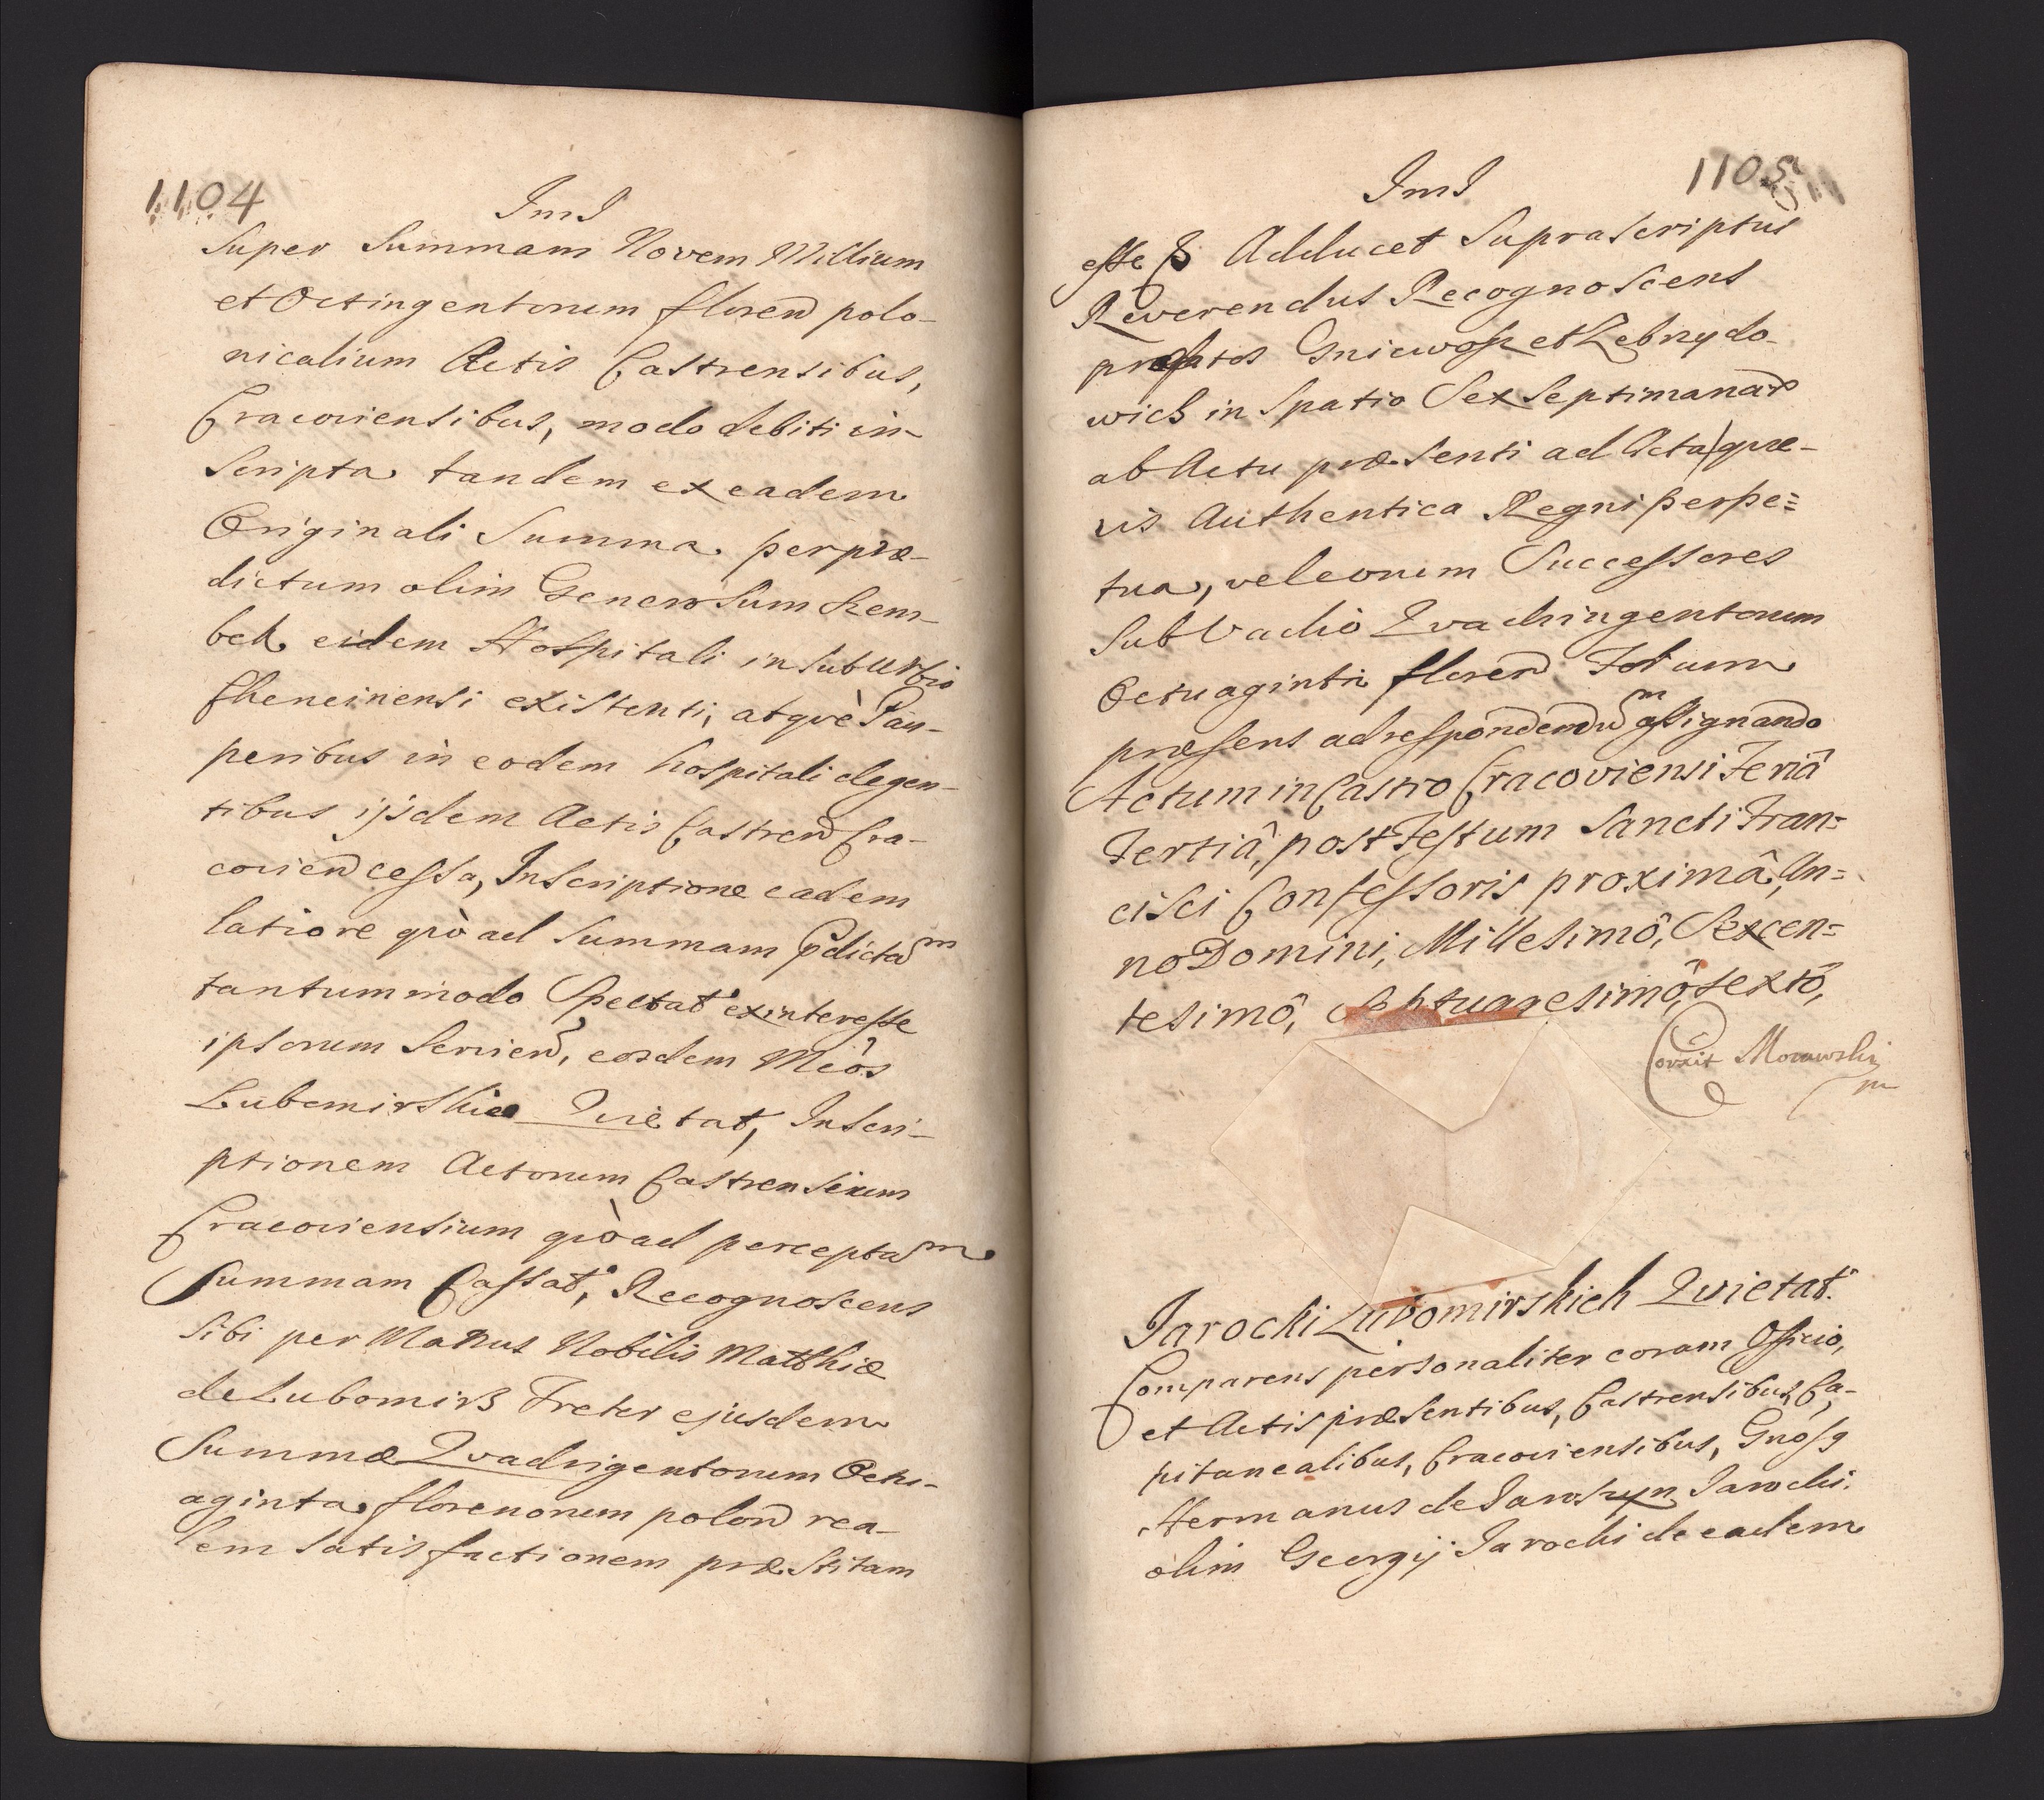 1104
ImI
Super Summam Novem Millium
et Octingentorum floren polo-
nicalium Actis Castrensibus,
Cracoviensibus, modo debiti in-
scripta tandem ex eadem
Originali Summa per præ-
dictum olim Generosum Szem-
bek eidem Hospitali in suburbio
Chencinensi existenti, atquè Pau-
peribus in eodem hospitali degen-
tibus ijsdem Actis Castren Cra-
covien cessa, Inscriptione eadem
latiore quò ad Summam pdictam
tantummodo Spectat ex interesse
ipsorum Servien, eosdem Mcos
Lubomirskie Quietat, Inscri-
ptionem Actorum Castrensium
Cracoviensium quò ad perceptam
Summam Cassat, Recognoscens
Sibi per Manus Nobilis Matthiæ
de Lubomirz Treter ejusdem
Summæ Qvadrigentorum Octu-
aginta florenorum polon rea-
lem Satisfactionem præstitam
1105
ImI
esse & Adducet Suprascriptus
Reverendus Recognoscens
præfatos Gniewosz et Zebrzydo-
wich in Spatio Sex Septimanar
ab Actu præsenti ad Acta quæ-
vis Authentica Regni perpe=
tua, vel eorum Successores
Sub Vadio Qvadringentorum
Octuaginta floren Forum
præsens ad respondendum assignando
Actum in Castro Cracoviensi Feriâ
Tertiâ, post Festum Sancti Fran=
cisci Confessoris proximâ, An=
no Domini, Millesimô, Sexcen=
tesimô, Septuagesimô, sextô,
Corxit Morawski
m
Jarocki Lubomirskich Quietat.
Comparens personaliter coram Officio,
et Actis præsentibus, Castrensibus, Ca-
pitanealibus, Cracoviensibus, Gnosg
Hermanus de Jaroszyn Jarocki
olim Georgij Jarocki de eadem